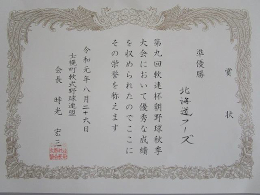 賞状
準優勝
北海道フーズ
第九回軟連杯朝野球秋季
大会において優秀な成績
を収められたのでここに
その栄誉を称えます
令和元年八月二十九日
士幌町軟式野球連盟
会長